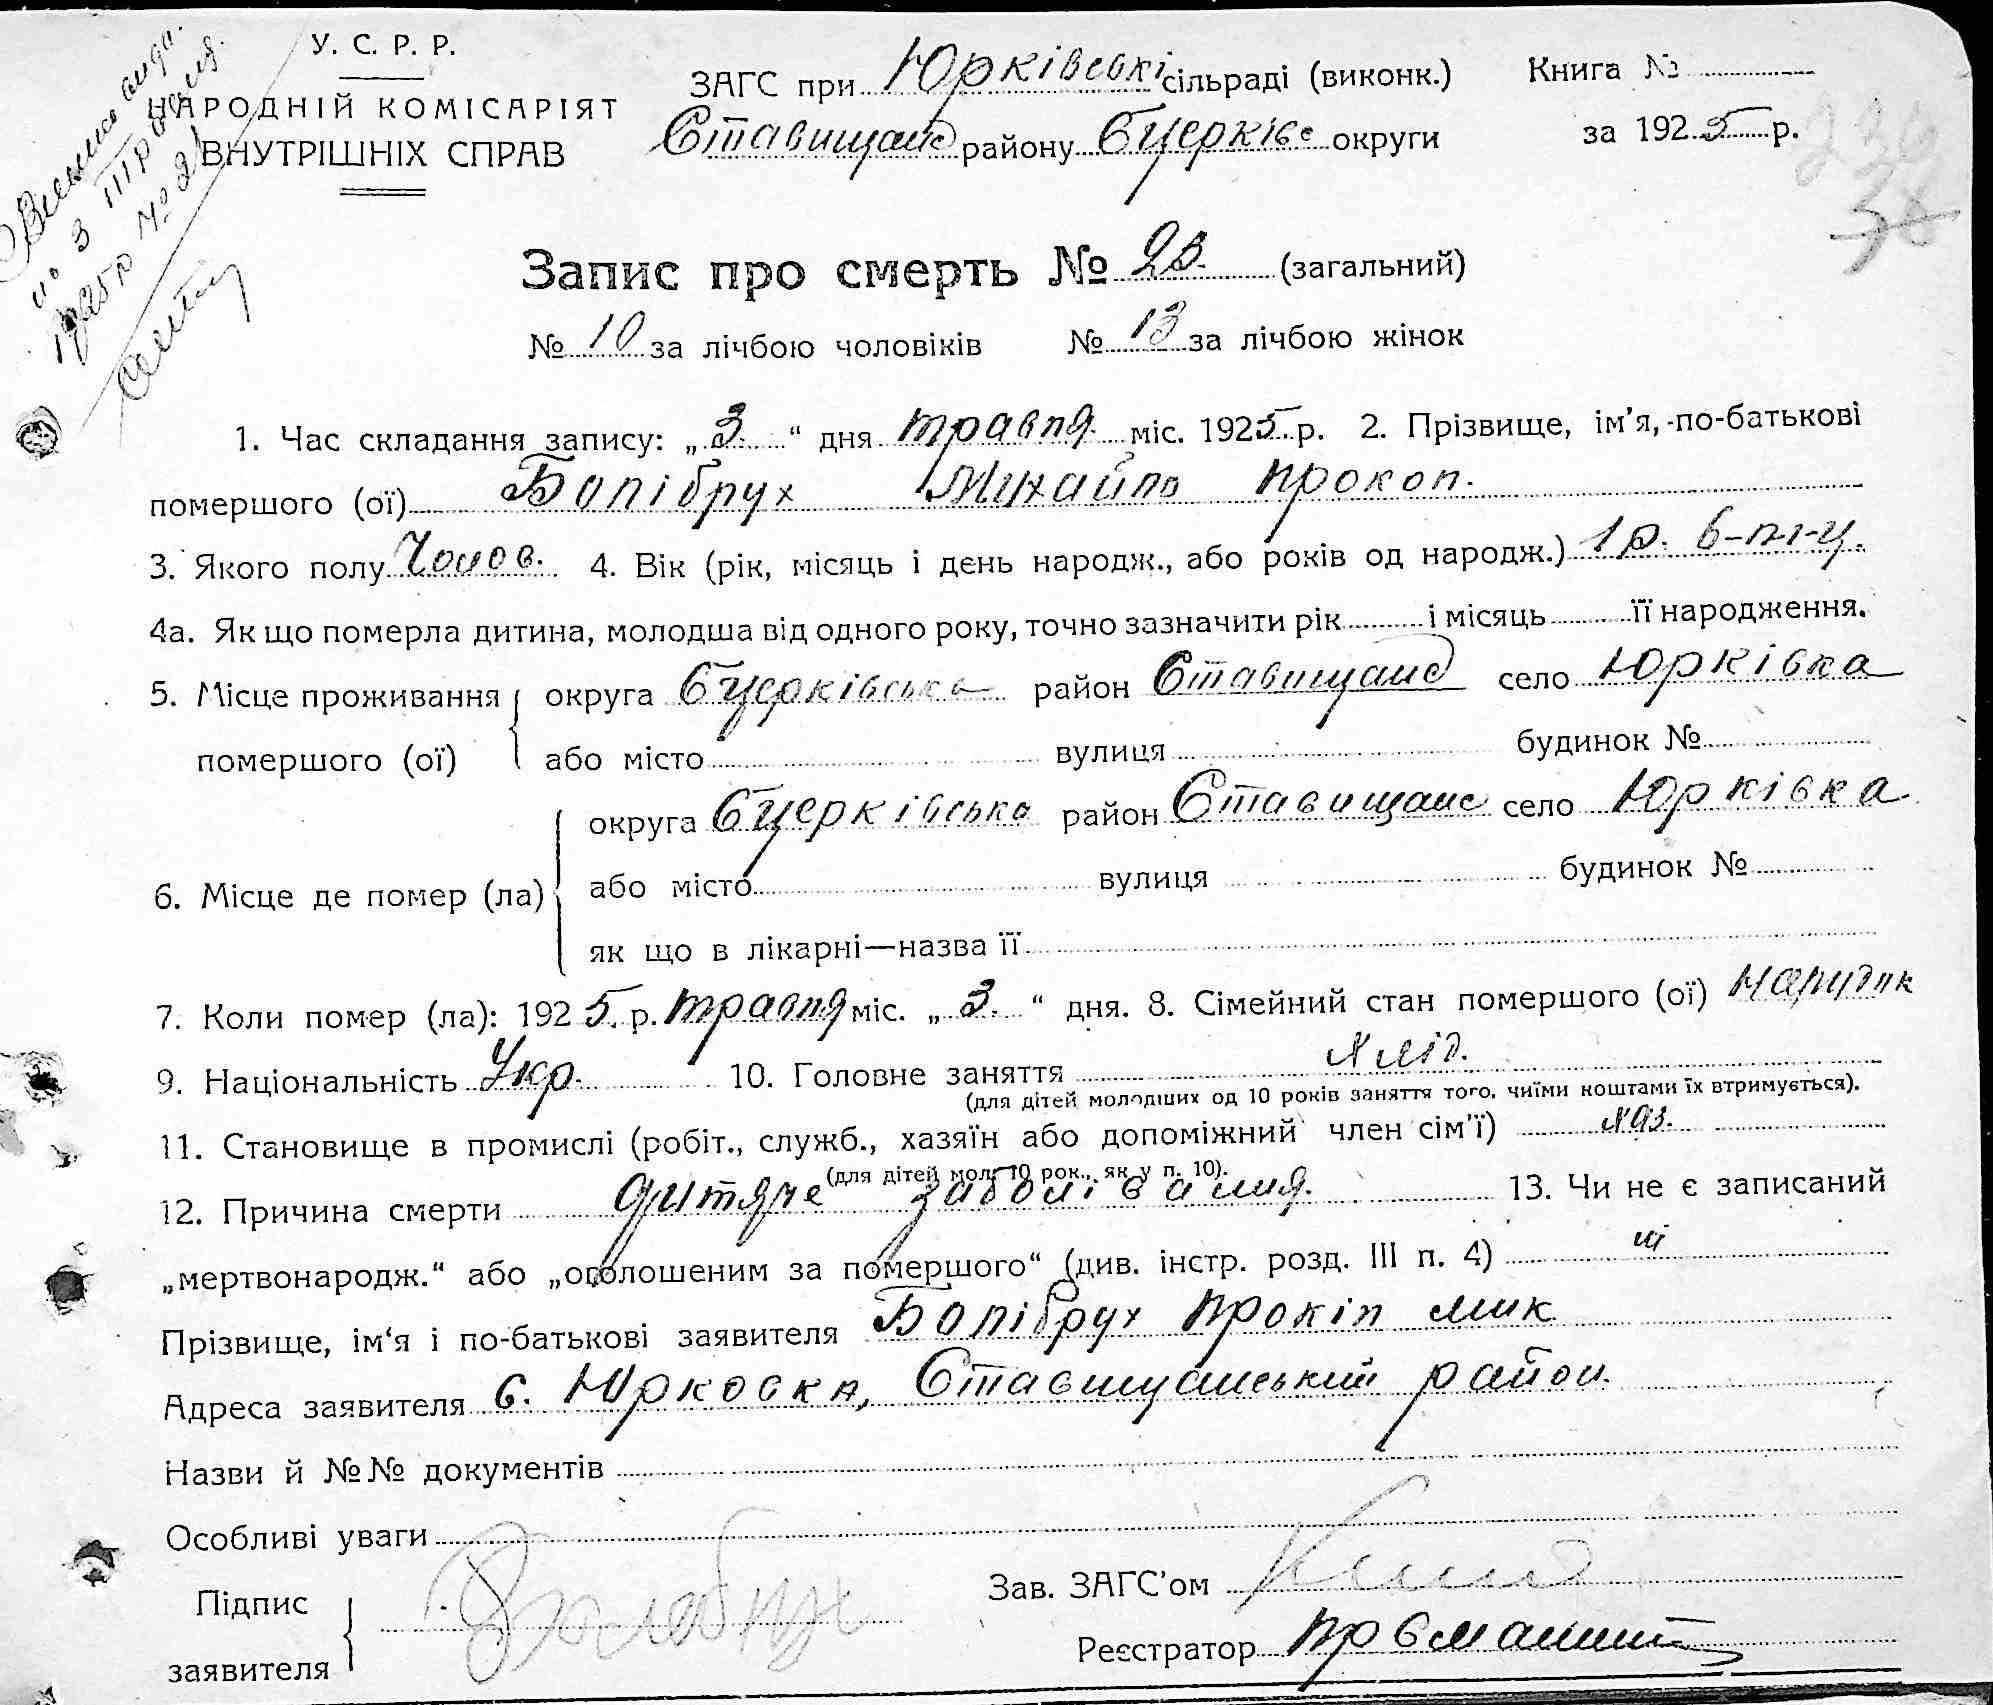 У. С. Р. Р.
НАРОДНІЙ КОМІСАРІЯТ
ВНУТРІШНІХ СПРАВ
ЗАГС при Юрківські сільраді (виконк.)
Ставищанс району Бцерківс округи
Книга №
за 1925 р.
3 травня
1925р № 21
Запис про смерть № 23. (загальний)
№ 10 за лічбою чоловіків № 13 за лічбою жінок
1. Час складання запису: „3.“ дня травня міс. 1925 р. 2. Прізвище, ім'я, по-батькові
помершого (ої) Болібрух Михайло Прокоп.
3. Якого полу Чолов. 4. Вік (рік, місяць і день народж., або років од народж.) 1 р. 6-м-ц.
4а. Як що померла дитина, молодша від одного року, точно зазначити рік і місяць її народження.
5. Місце проживання округа Бцерківська район Ставищанс село Юрківка
помершого (ої) або місто вулиця будинок №
округа Бцерківська район Ставищанс село Юрківка
6. Місце де помер (ла) або місто вулиця будинок №
як що в лікарні—назва її
7. Коли помер (ла): 1925. р. травня міс. „3.“ дня. 8. Сімейний стан помершого (ої)
9. Національність Укр. 10. Головне заняття хлід.
(для дітей молодших од 10 років заняття того, чиїми коштами їх втримується).
11. Становище в промислі (робіт., служб., хазяїн або допоміжний член сім'ї) хаз.
(для дітей мол. 10 рок., як у п. 10).
12. Причина смерти дитяче заболівания. 13. Чи не є записаний
„мертвонародж.“ або „оголошеним за помершого“ (див. інстр. розд. III п. 4) ні
Прізвище, ім'я і по-батькові заявителя Болібрух Прокіп Мик
Адреса заявителя с. Юрковка, Ставищанський район.
Назви й №№ документів
Особливі уваги
Підпис
заявителя
Зав. ЗАГС'ом
Реєстратор